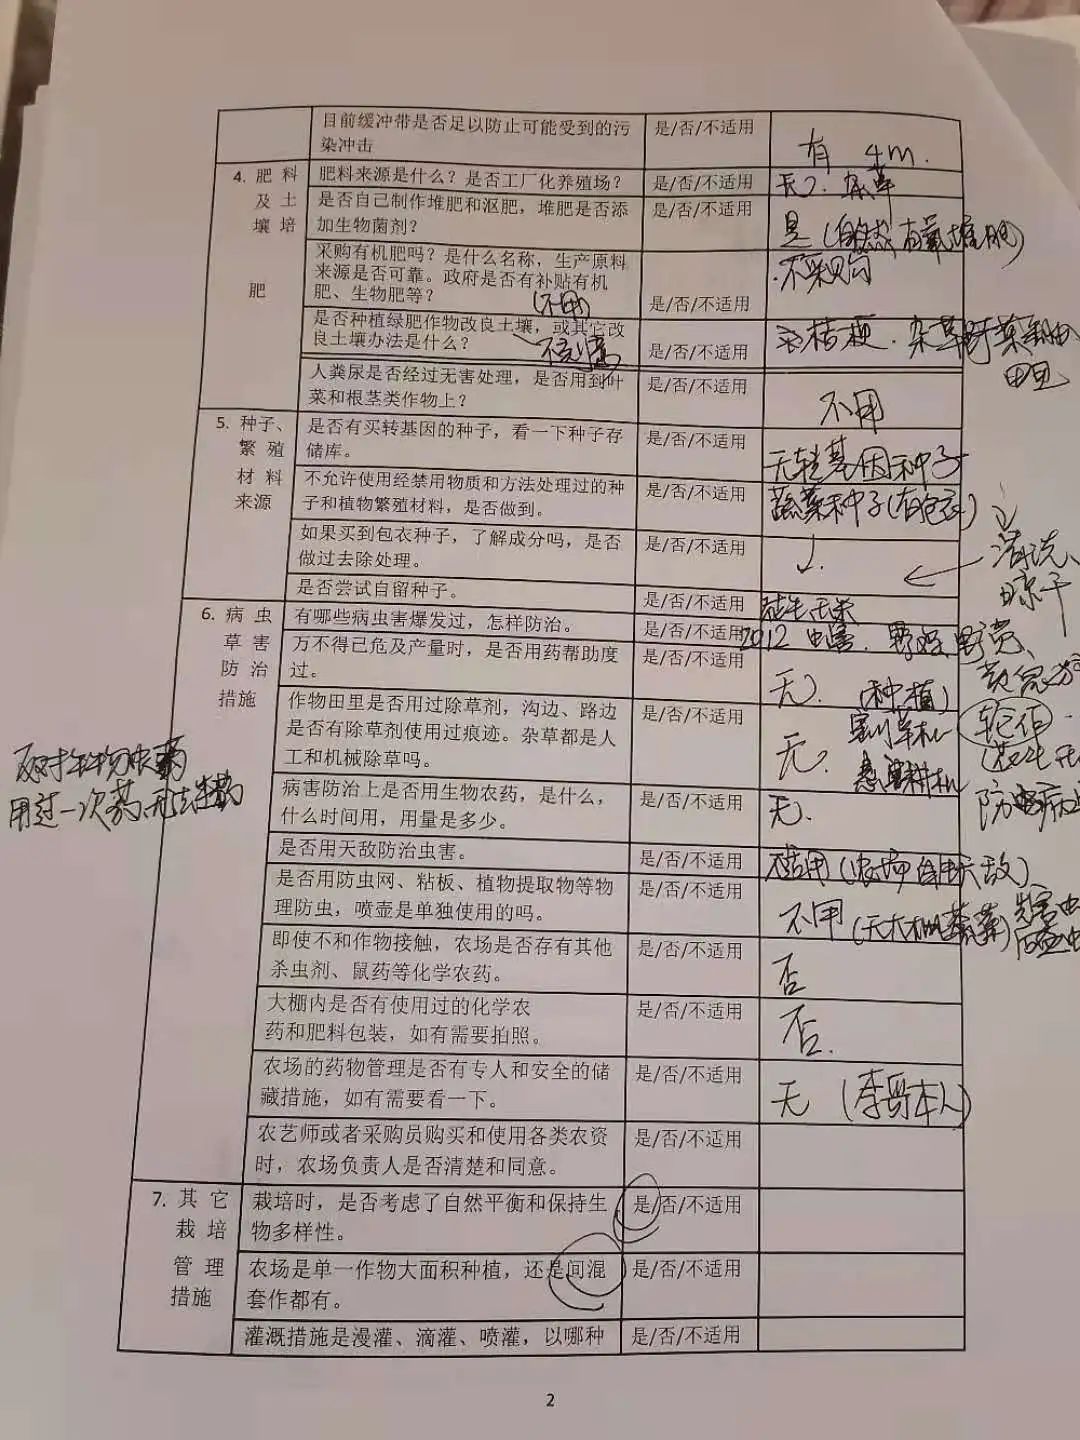 目前缓冲带是否足以防止可能受到的污 是/否/不适用
染冲击 有 4m.
4. 肥料 肥料来源是什么？是否工厂化养殖场？ 是/否/不适用 无. 杂草
及土 是否自己制作堆肥和沤肥，堆肥是否添 是/否/不适用
壤培 加生物菌剂？ 是(自然有氧堆肥)
采购有机肥吗？是什么名称，生产原料 不采购
来源是否可靠。政府是否有补贴有机
肥 肥、生物肥等？ (不用) 是/否/不适用
是否种植绿肥作物改良土壤，或其它改 桔梗. 杂草
良土壤办法是什么？ 是/否/不适用
人粪尿是否经过无害处理，是否用到叶 是/否/不适用
菜和根茎类作物上？ 不用
5. 种子、 是否有买转基因的种子，看一下种子存 是/否/不适用
繁殖 储库。 无转基因种子
材料 不允许使用经禁用物质和方法处理过的种 是/否/不适用 蔬菜种子(有包衣)
来源 子和植物繁殖材料，是否做到。
如果买到包衣种子，了解成分吗，是否 是/否/不适用 清洗、
做过去除处理。 晾干
是否尝试自留种子。 是/否/不适用
6. 病虫 有哪些病虫害爆发过，怎样防治。 是/否/不适用 2012 虫害.
草害 万不得已危及产量时，是否用药帮助度 是/否/不适用
防治 过。 无. (种植)
措施 作物田里是否用过除草剂，沟边、路边 是/否/不适用 割草机 轮作
是否有除草剂使用过痕迹。杂草都是人 无.
工和机械除草吗。
用过一次药.
病害防治上是否用生物农药，是什么， 是/否/不适用 无.
什么时间用，用量是多少。
是否用天敌防治虫害。 是/否/不适用 不适用(农场自由天敌)
是否用防虫网、粘板、植物提取物等物 是/否/不适用
理防虫，喷壶是单独使用的吗。 不用(无大棚蔬菜)
即使不和作物接触，农场是否存有其他 是/否/不适用
杀虫剂、鼠药等化学农药。 否
大棚内是否有使用过的化学农 是/否/不适用
药和肥料包装，如有需要拍照。 否.
农场的药物管理是否有专人和安全的储 是/否/不适用
藏措施，如有需要看一下。 无 (李哥本人)
农艺师或者采购员购买和使用各类农资 是/否/不适用
时，农场负责人是否清楚和同意。
7. 其它 栽培时，是否考虑了自然平衡和保持生 是/否/不适用
栽培 物多样性。
管理 农场是单一作物大面积种植，还是间混 是/否/不适用
措施 套作都有。
灌溉措施是漫灌、滴灌、喷灌，以哪种 是/否/不适用
2